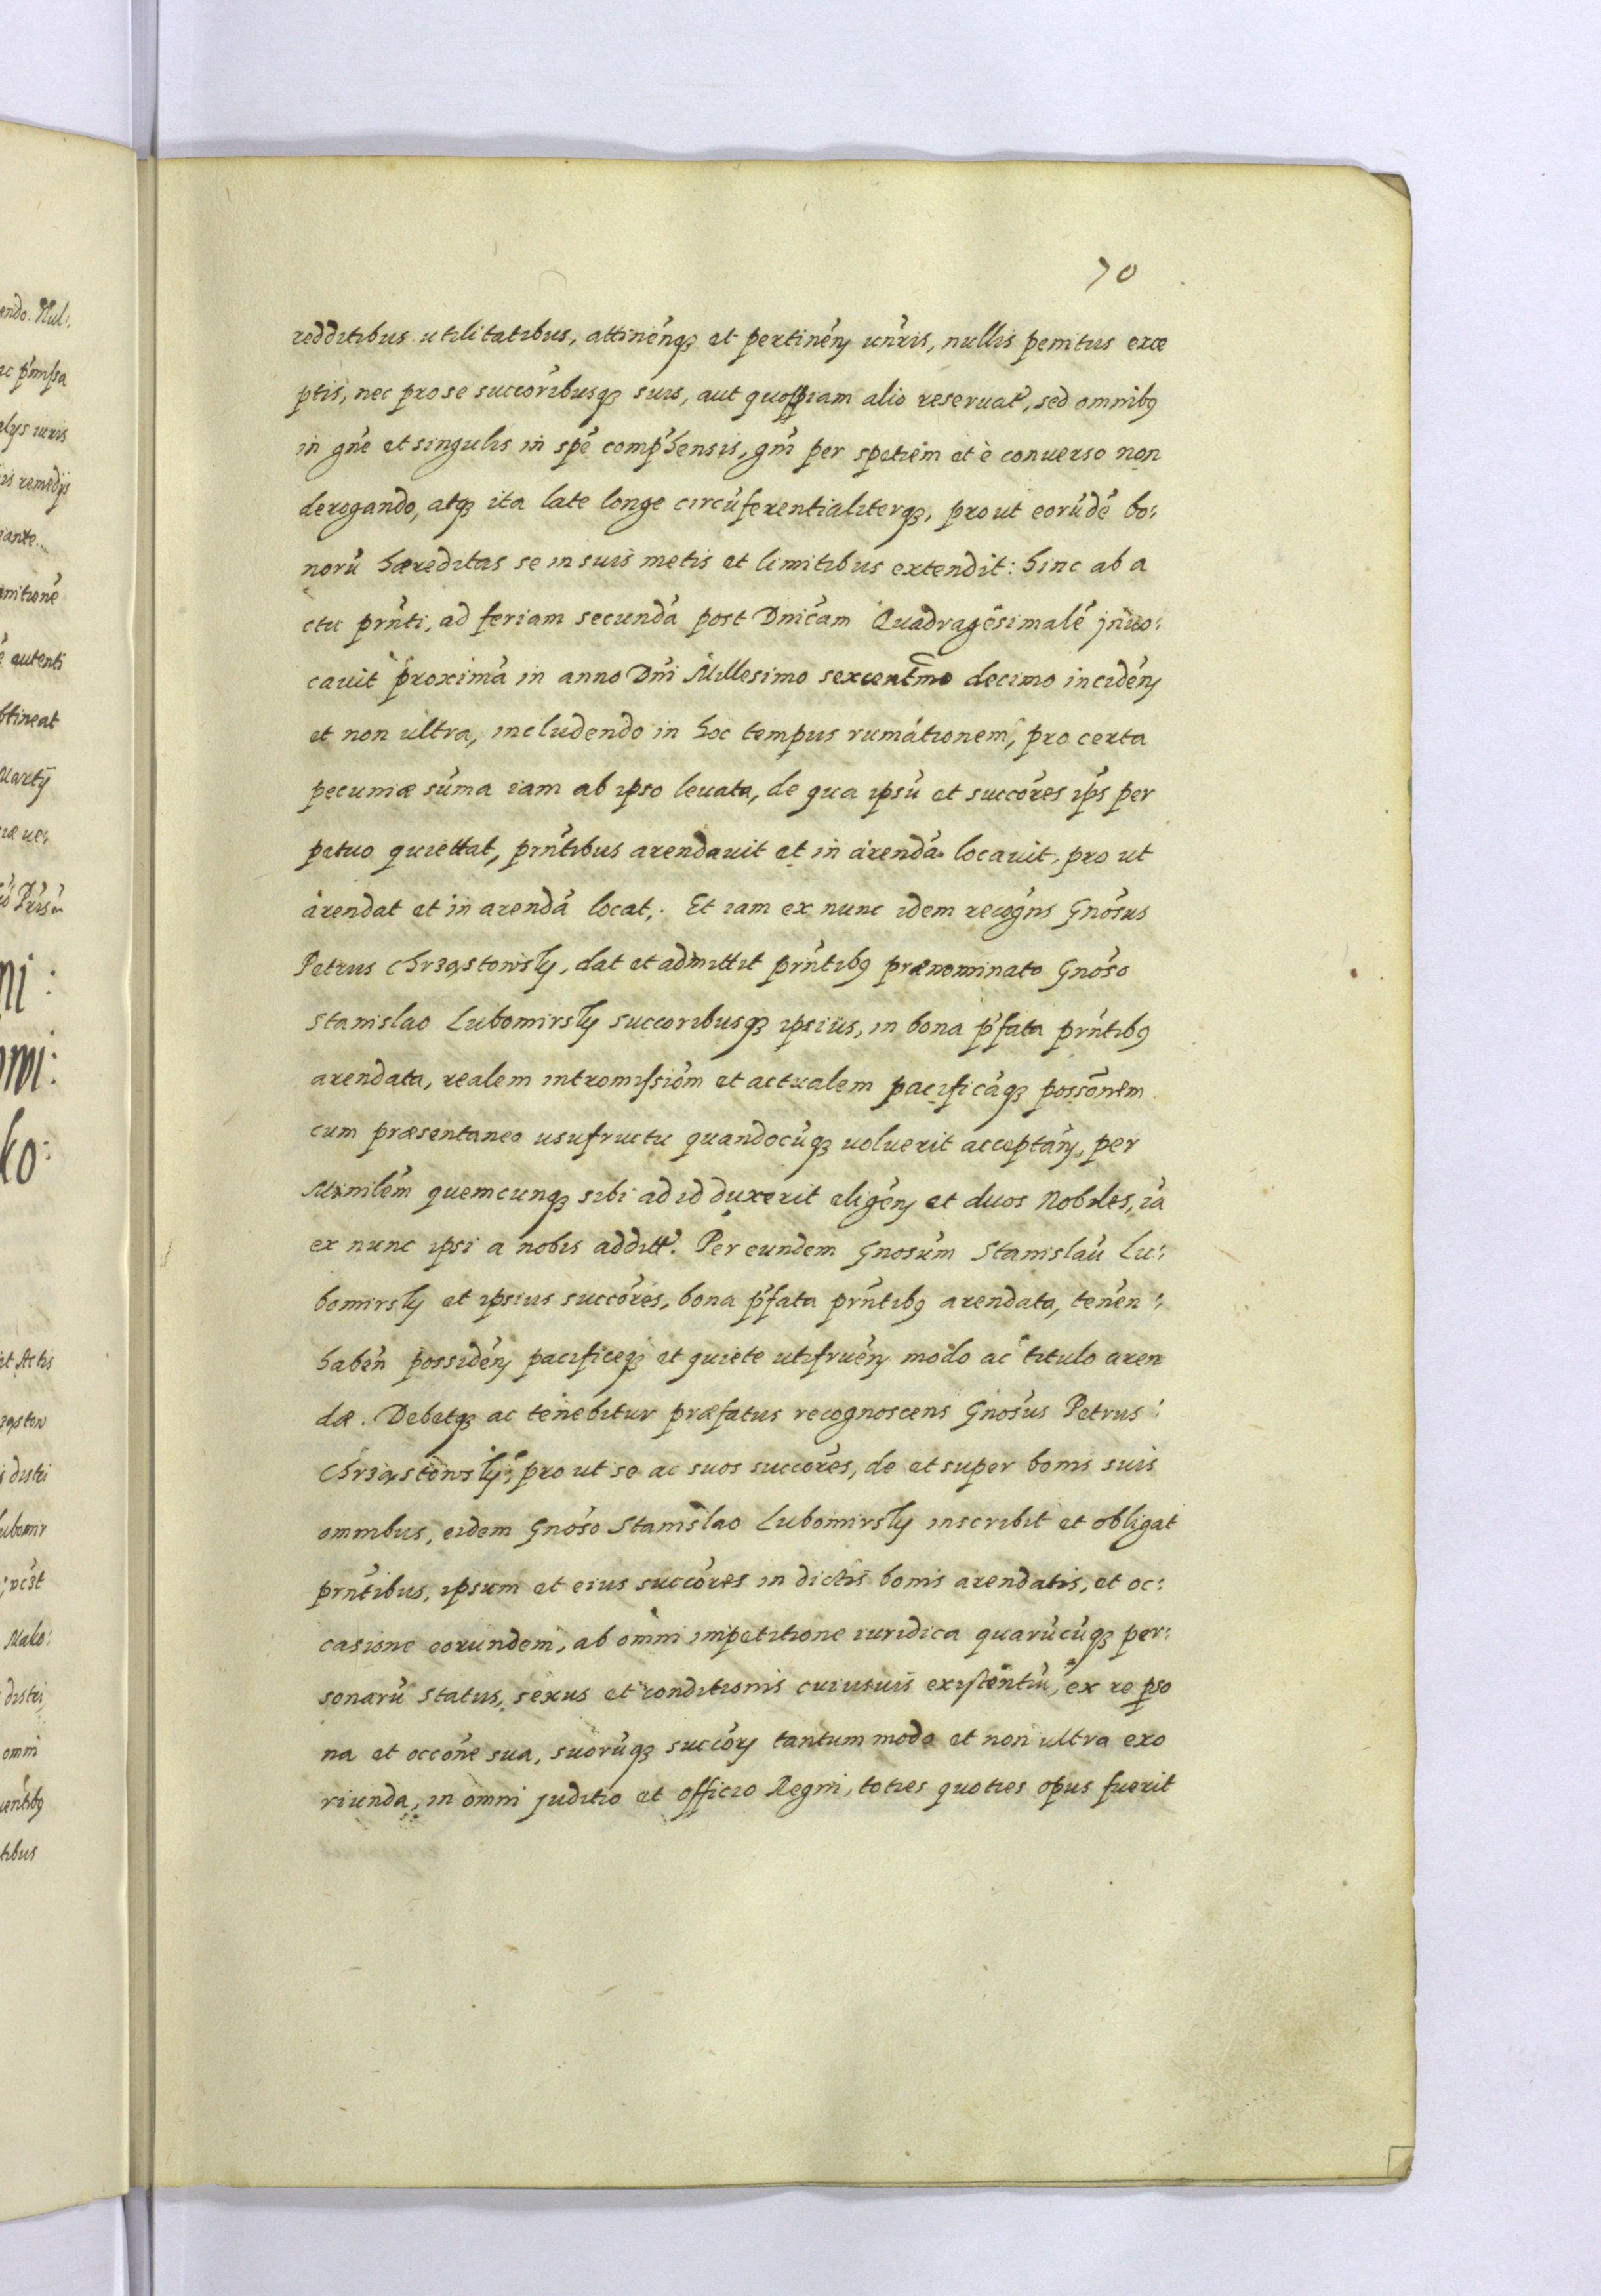 70
redditibus utilitatibus, attinen̄qȝ et pertinen̄ un̄ris, nullis penitus exce
ptis, nec pro se succoribusqȝ suis, aut quopiam alio reseruat, sed omnibꝰ
in gn̄e et singulis in spē comp̄hensis, gn̄i per spetiem et è conuerso non
derogando, atqȝ ita late longe circūferentialiterqȝ, prout eorūdē bo:
norū hæreditas se in suis metis et limitibus extendit: hinc ab a
ctu prn̄ti, ad feriam secundā post Dnicam Quadragesimalē jnuo:
cauit proximā in anno Dn̄i Millesimo sexcentm̄o decimo inciden̄
et non ultra, includendo in hoc tempus rumātionem, pro certa
pecuniæ sūma iam ab ipso leuata, de qua ipsū et succōres ip̄s per
petuo quiettat, prn̄tibus arendauit et in arendā locauit, pro ut
arendat et in arendā locat,. Et iam ex nunc idem recogn̄s Gnōsus
Petrus Chrząstowsky, dat et admittit prn̄tibꝰ prænominato Gnōso
Stanislao Lubomirsky succoribusqȝ ipsius, in bona p̄fata prn̄tibꝰ
arendata, realem intromissiōm et actualem pacificāqȝ possōnem
cum præsentaneo usufructu quandocūqȝ uoluerit acceptan̄, per
Mīnilēm quemcunqȝ sibi ad id duxerit eligen̄ et duos Nobiles, iā
ex nunc ipsi a nobis additt. Per eundem Gnosūm Stanislaū Lu:
bomirsky et ipsius succōres, bona p̄fata prn̄tibꝰ arendata, tenēn:
habēn possidēn pacificeqȝ et quiete utifruēn modo ac titulo aren
dæ. Debetqȝ ac tenebitur præfatus recognoscens Gnōsus Petrus:
Chrząstowsky, pro ut se ac suos succōres, de et super bonis suis
omnibus, eidem Gnōso Stanislao Lubomirsky inscribit et obligat
prn̄tibus, ipsum et eius succōres in dictis bonis arendatis, et oc:
casione eorundem, ab omni impetitione iuridica quarūcūqȝ per:
sonarū status, sexus et conditionis cuiusuis existentiū, ex re pso
na et occōne sua, suorūqȝ succōr tantum modo et non ultra exo
riunda, in omni juditio et officio Regni, toties quoties opus fuerit